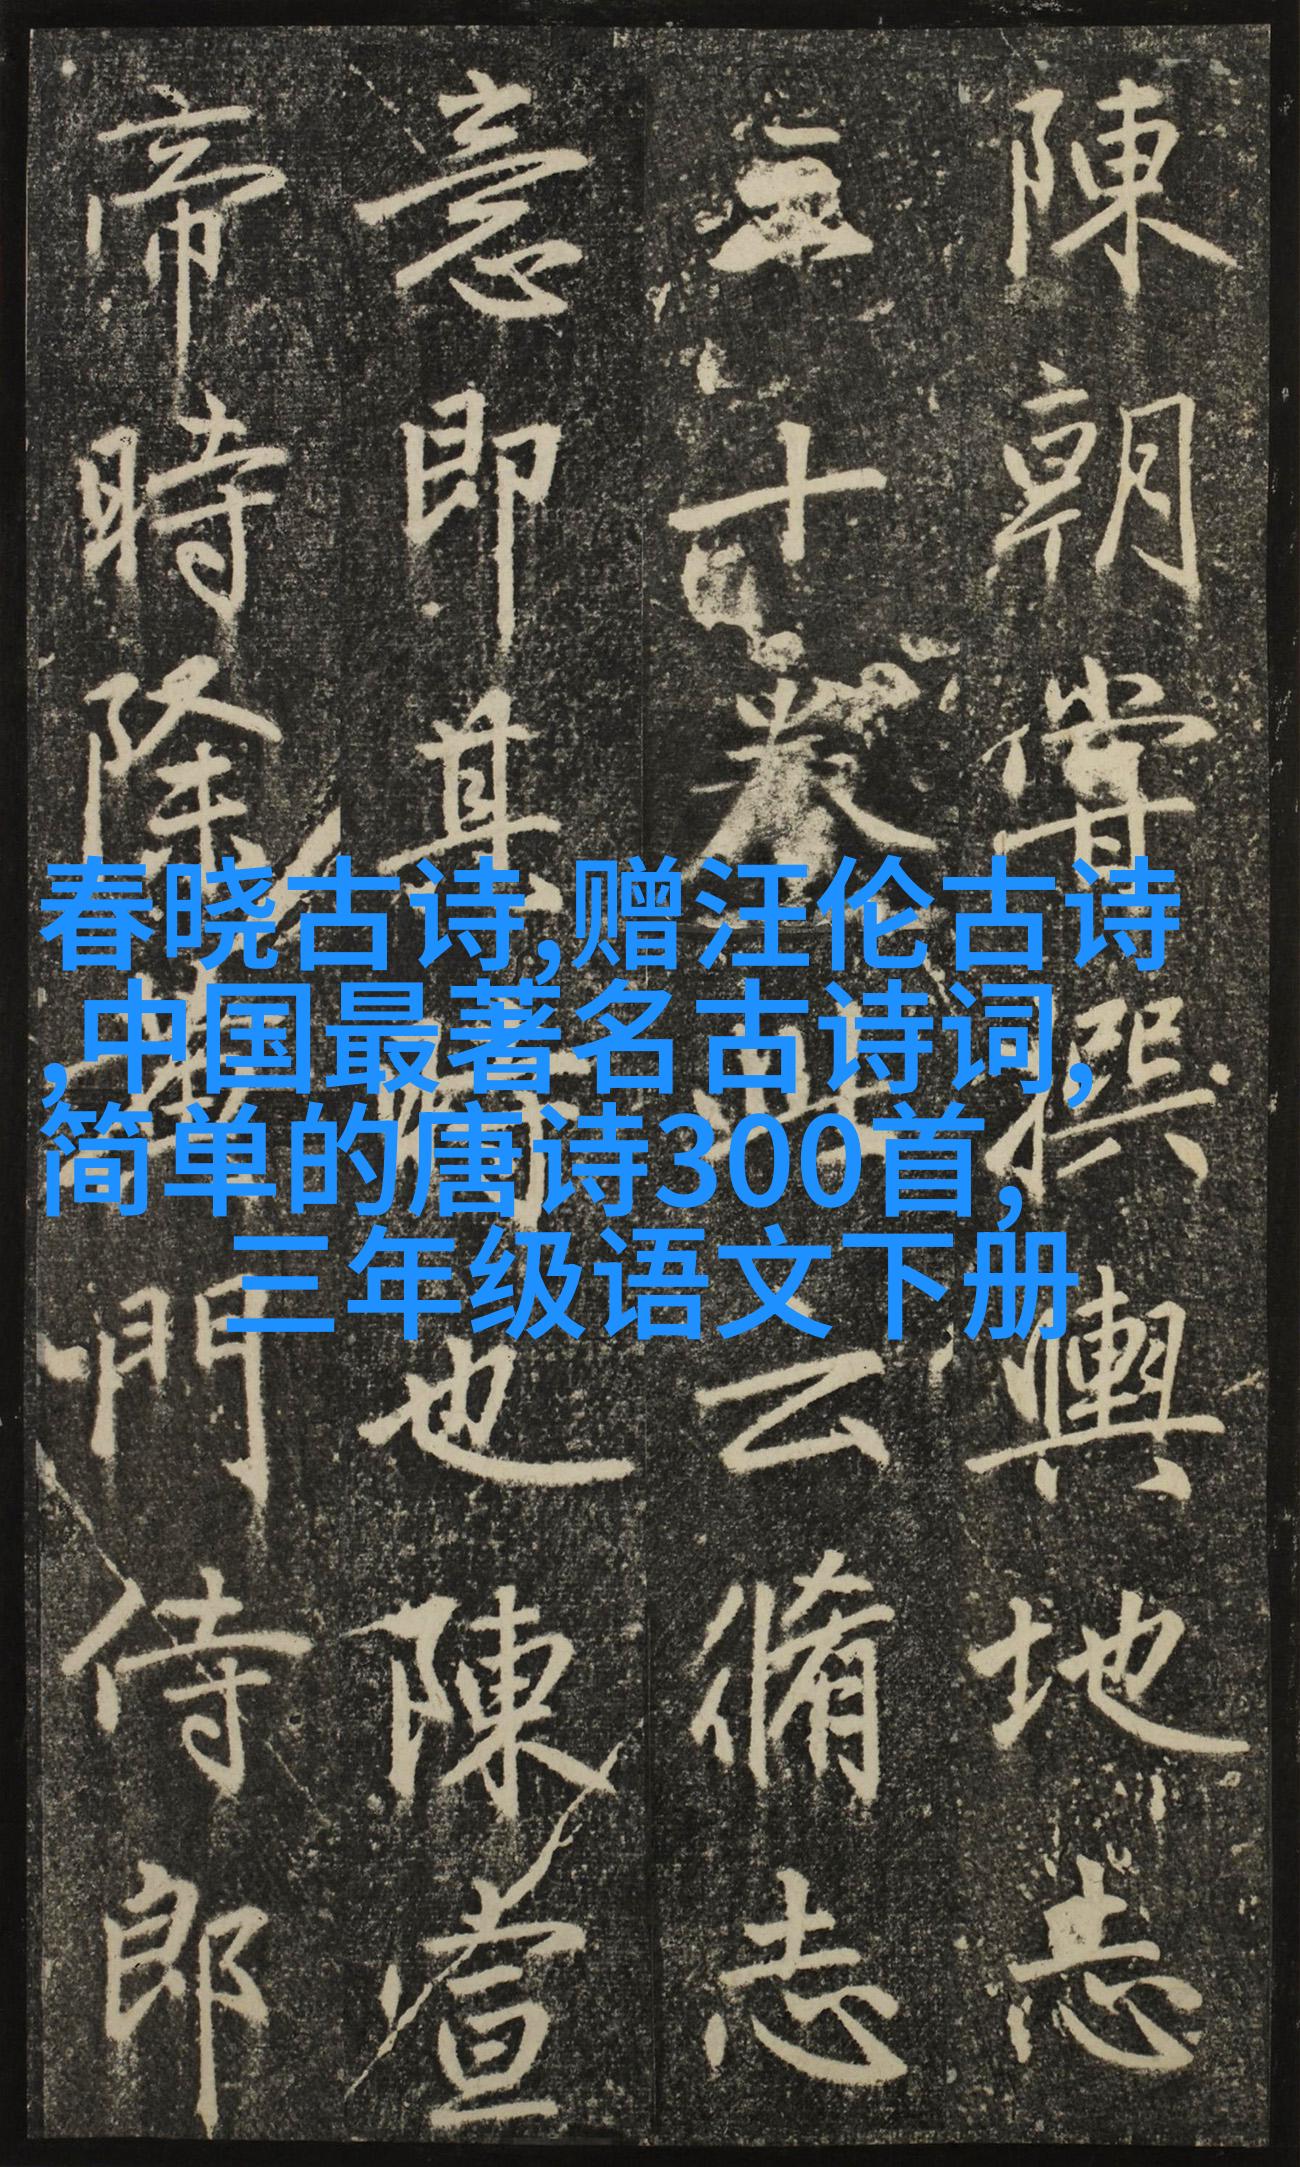 陳朝嘗撰輿地志
三十卷此云脩志
意即其也陳宣
帝時除黃門侍郎
春晓古诗,赠汪伦古诗
,中国最著名古诗词,
简单的唐诗300首,
三年级语文下册